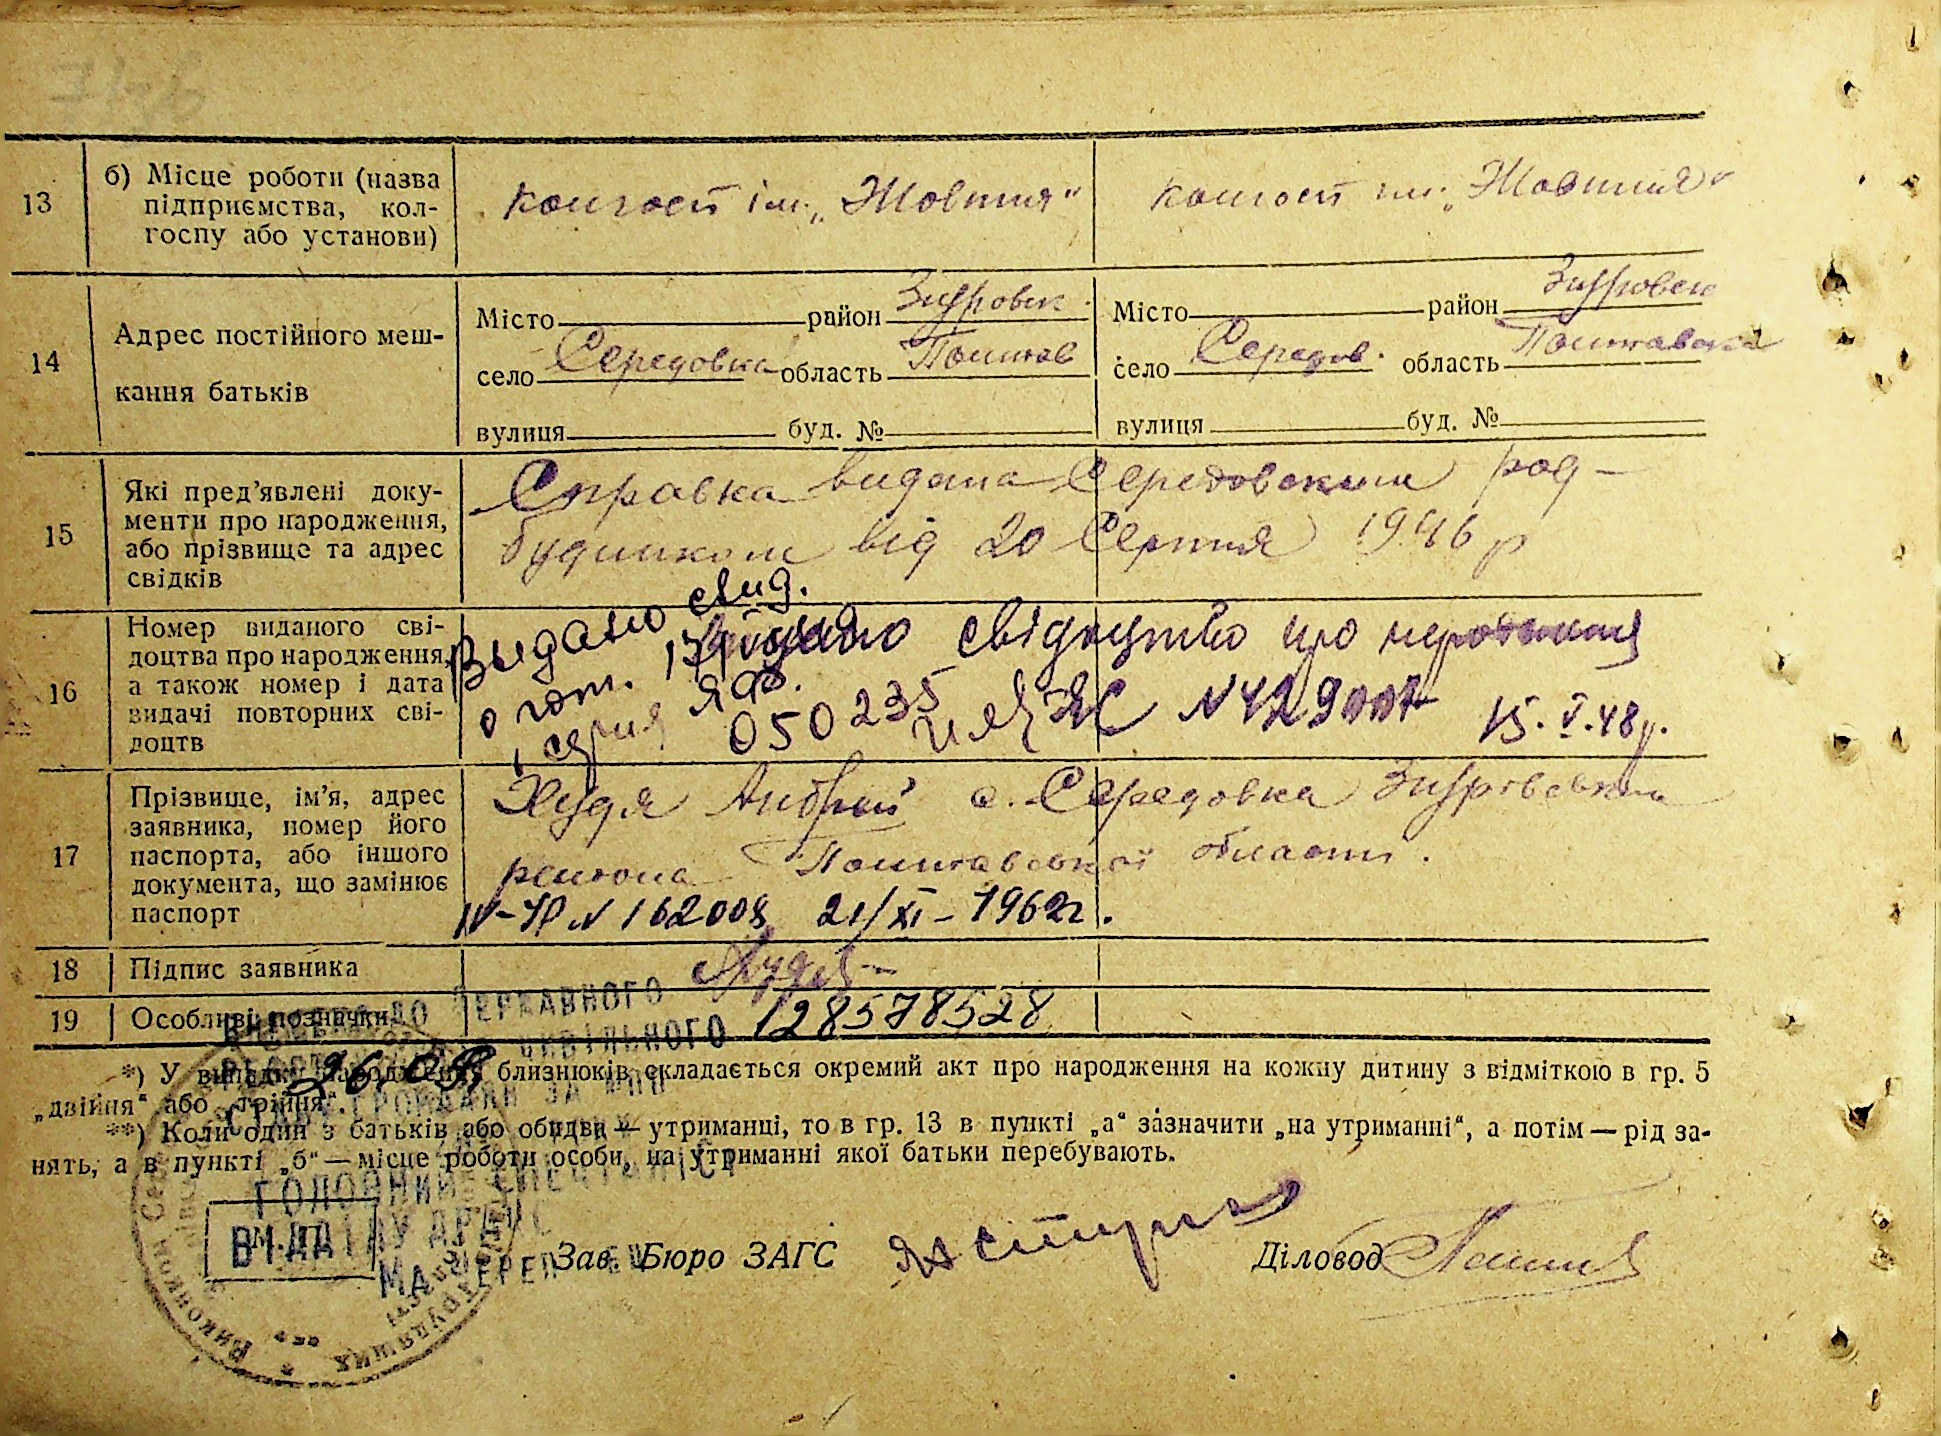 13
б) Місце роботи (назва
підприємства, кол-
госпу або установи)
колгосп ім. „Жовтня“
колгосп ім. „Жовтня“
14
Адрес постійного меш-
кання батьків
Місто район Згуровск
село Середовка область Полтав
вулиця буд. №
Місто район Згуровск
село Середов. область Полтавска
вулиця буд. №
15
Які пред’явлені доку-
менти про народження,
або прізвище та адрес
свідків
Справка видана Середовским род-
будинком від 20 Серпня 1946 р
16
Номер виданого сві-
доцтва про народження,
а також номер і дата
видачі повторних сві-
доцтв
Выдано свид.
серия ЯФ.
050235
свідоцтво про народження
№429007 15.V.48р.
17
Прізвище, ім’я, адрес
заявника, номер його
паспорта, або іншого
документа, що замінює
паспорт
Худя Андрій с. Середовка Згуровський
района Полтавської области.
IV-УР № 162008 21/XI-1962г.
18
Підпис заявника
Худя
19
Особливі позначки
128578528
ДО ДЕРЖАВНОГО
ЦИВІЛЬНОГО
26.09
*) У випадку народження близнюків складається окремий акт про народження на кожну дитину з відміткою в гр. 5
„двійня“ або „трійня“.
**) Коли один з батьків або обидва — утриманці, то в гр. 13 в пункті „а“ зазначити „на утриманні“, а потім — рід за-
нять, а в пункті „б“ — місце роботи особи, на утриманні якої батьки перебувають.
ГОЛОВНИЙ СПЕЦІАЛІСТ
М.П.
Зав. Бюро ЗАГС
Діловод